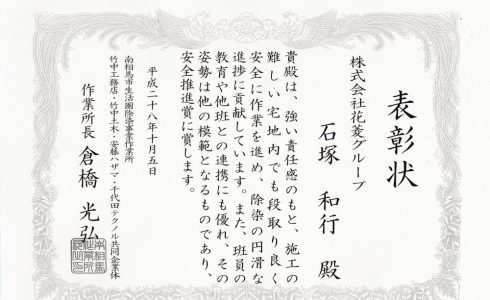 表彰状
株式会社花菱グループ
石塚 和行 殿
貴殿は、強い責任感のもと、施工の
難しい宅地内でも段取り良く
安全に作業を進め、除染の円滑な
進捗に貢献しています。また、班員の
教育や他班との連携にも優れ、その
姿勢は他の模範となるものであり、
安全推進賞に賞します。
平成二十八年十月五日
南相馬市生活圏除染事業作業所
竹中工務店・竹中土木・安藤ハザマ・千代田テクノル共同企業体
作業所長 倉橋 光弘